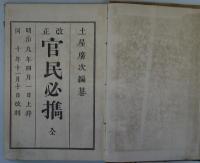 土屋廣次編纂
改正
官民必携
全
明治九年四月一日上梓
同十年十一月十日改刻